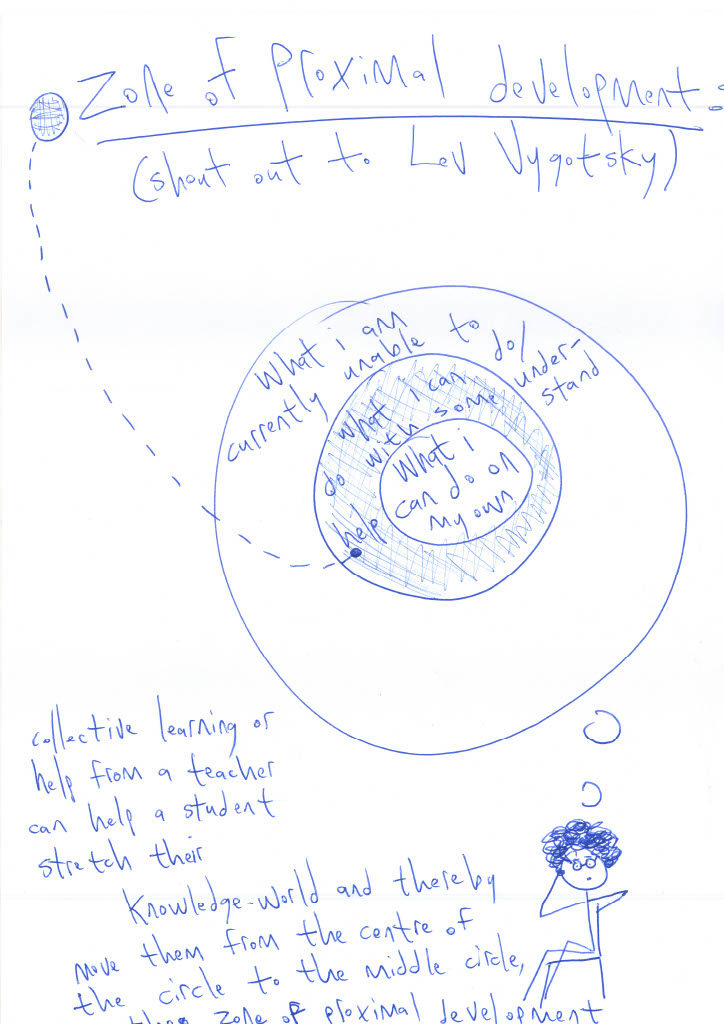 Zone of Proximal development:
(shout out to Lev Vygotsky)
What i am
currently unable to do/
under-
stand
what i can
do with some
help
What i
can do on
my own
collective learning or
help from a teacher
can help a student
stretch their
Knowledge-world and thereby
move them from the centre of
the circle to the middle circle,
zone of proximal development